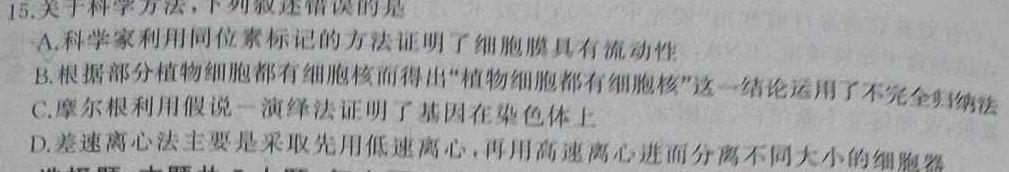 15.关于科学方法,下列叙述错误的是
A.科学家利用同位素标记的方法证明了细胞膜具有流动性
B.根据部分植物细胞都有细胞核而得出“植物细胞都有细胞核”这一结论运用了不完全归纳法
C.摩尔根利用假说—演绎法证明了基因在染色体上
D.差速离心法主要是采取先用低速离心,再用高速离心进而分离不同大小的细胞器